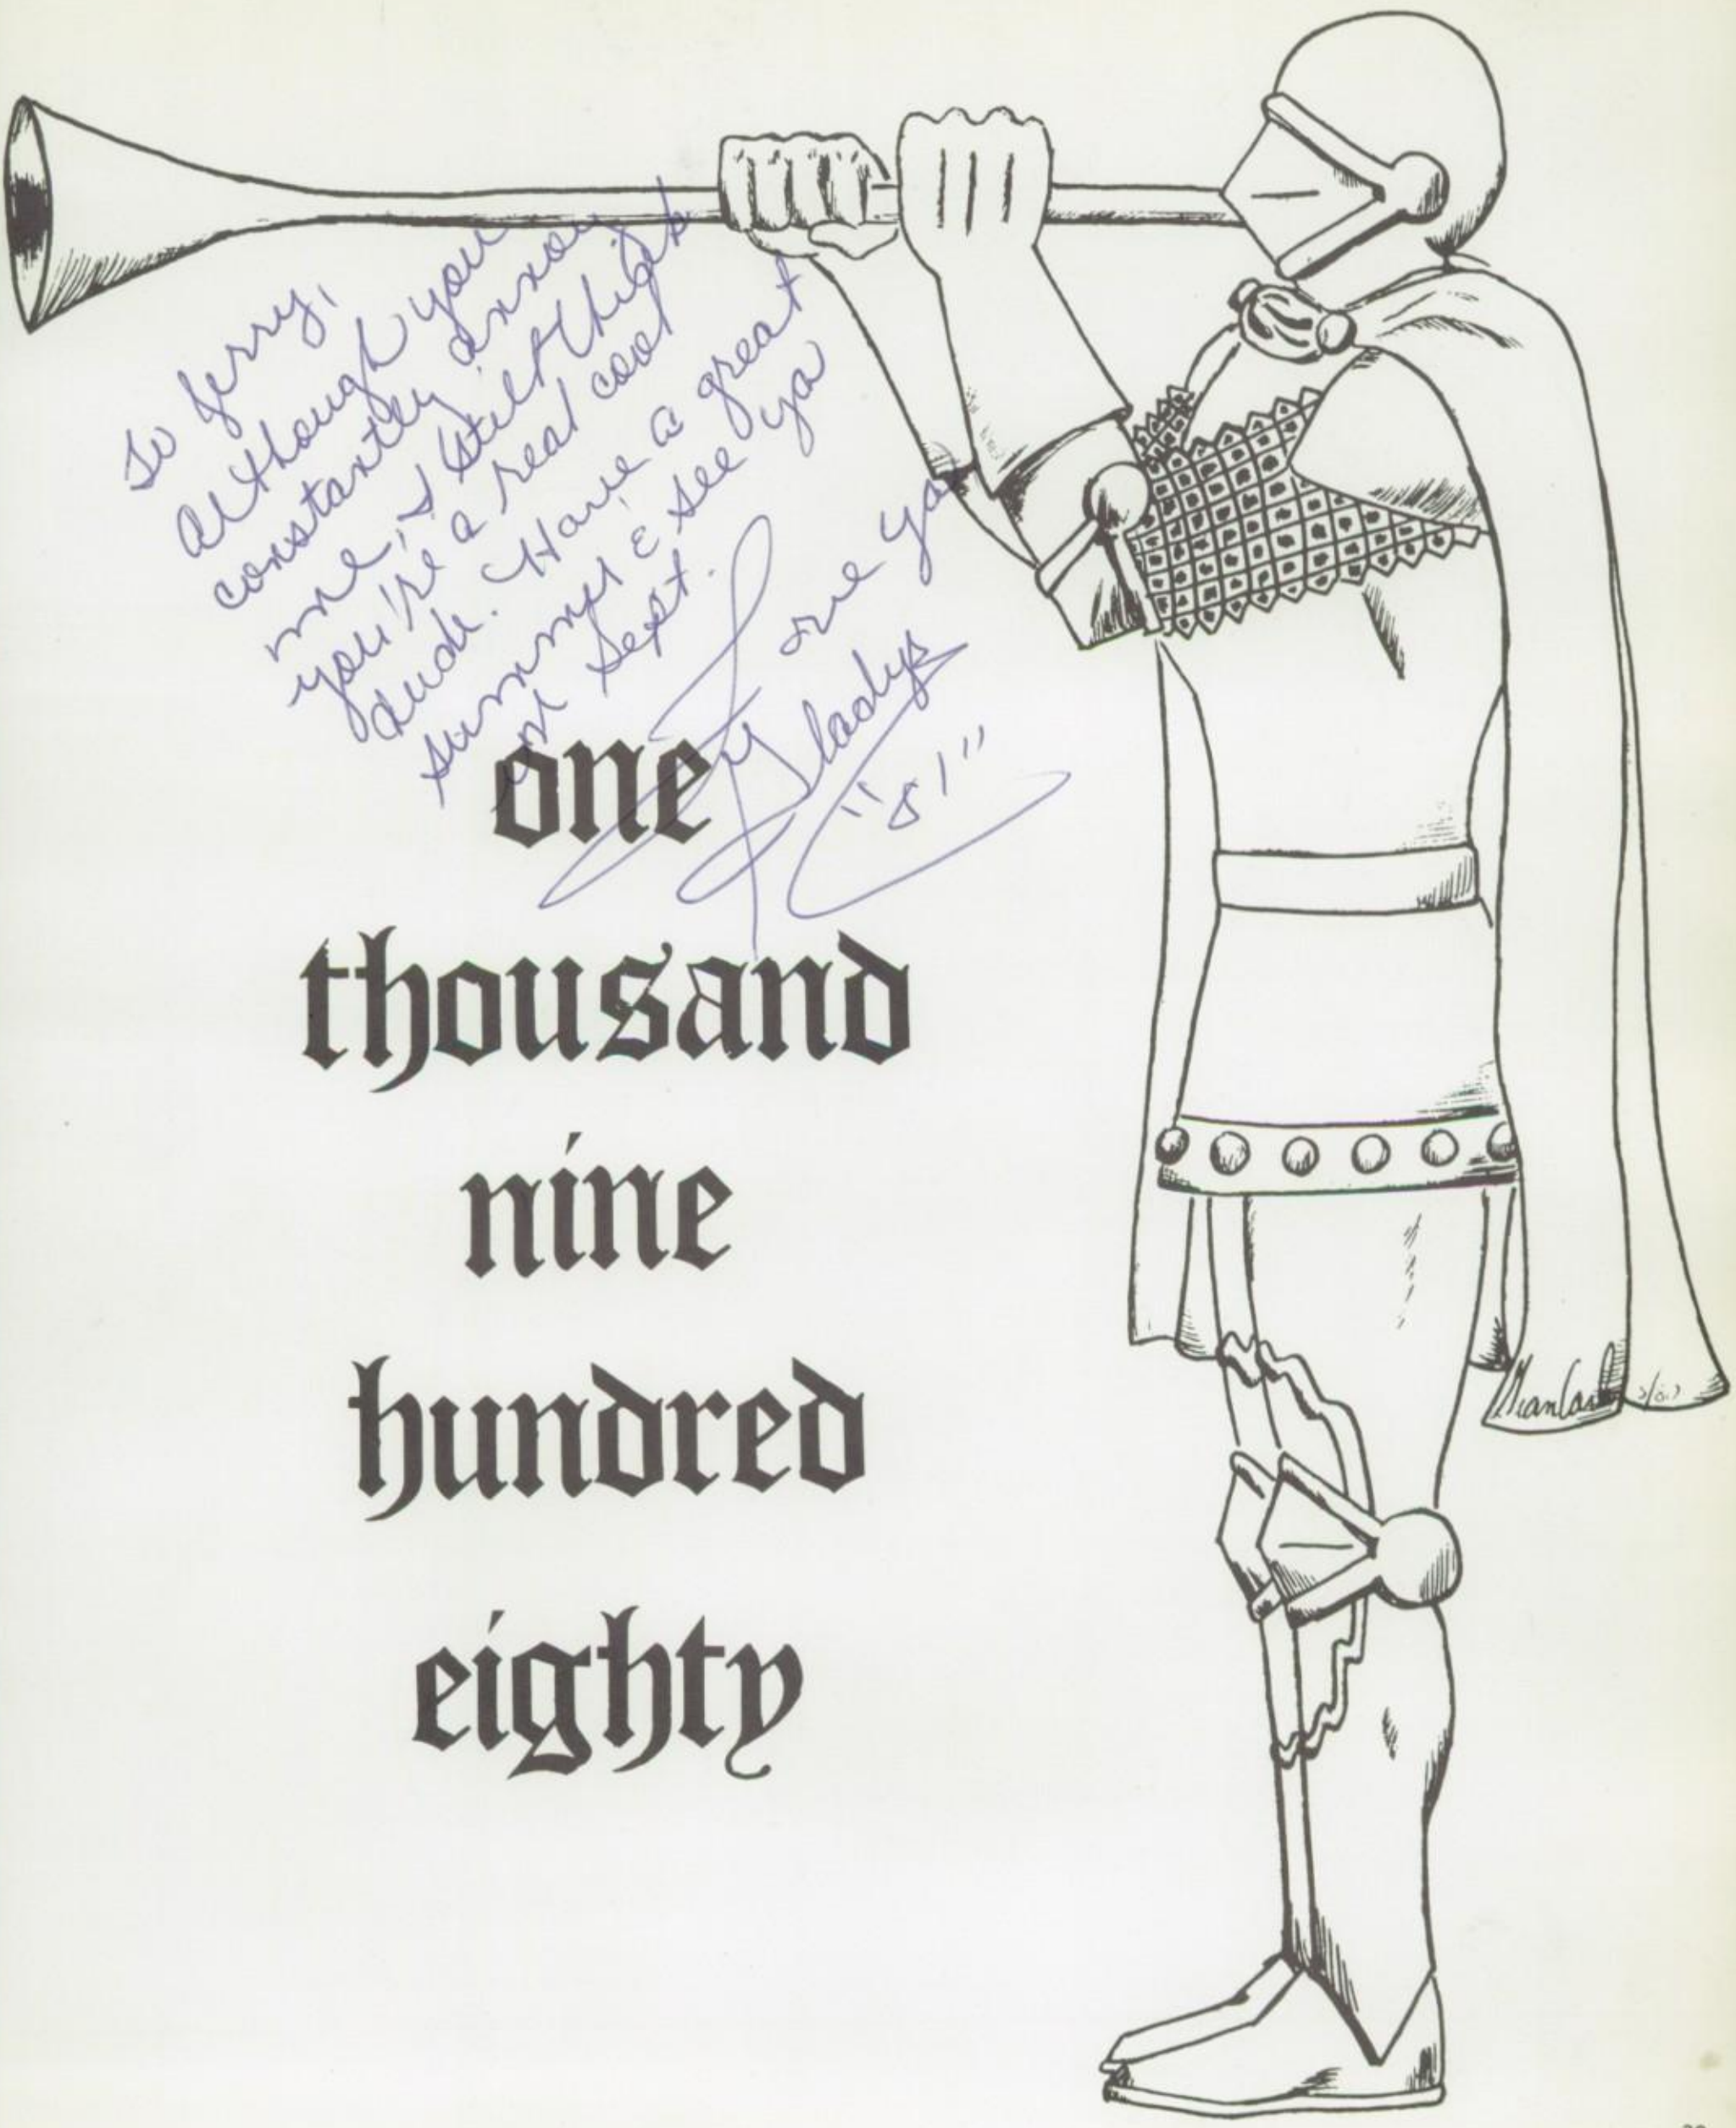 To Jerry,
Although you
constantly annoy
me, I still think
you're a real cool
dude. Have a great
summer & see ya
in Sept.
Love ya
Gladys
"81"
one
thousand
nine
hundred
eighty